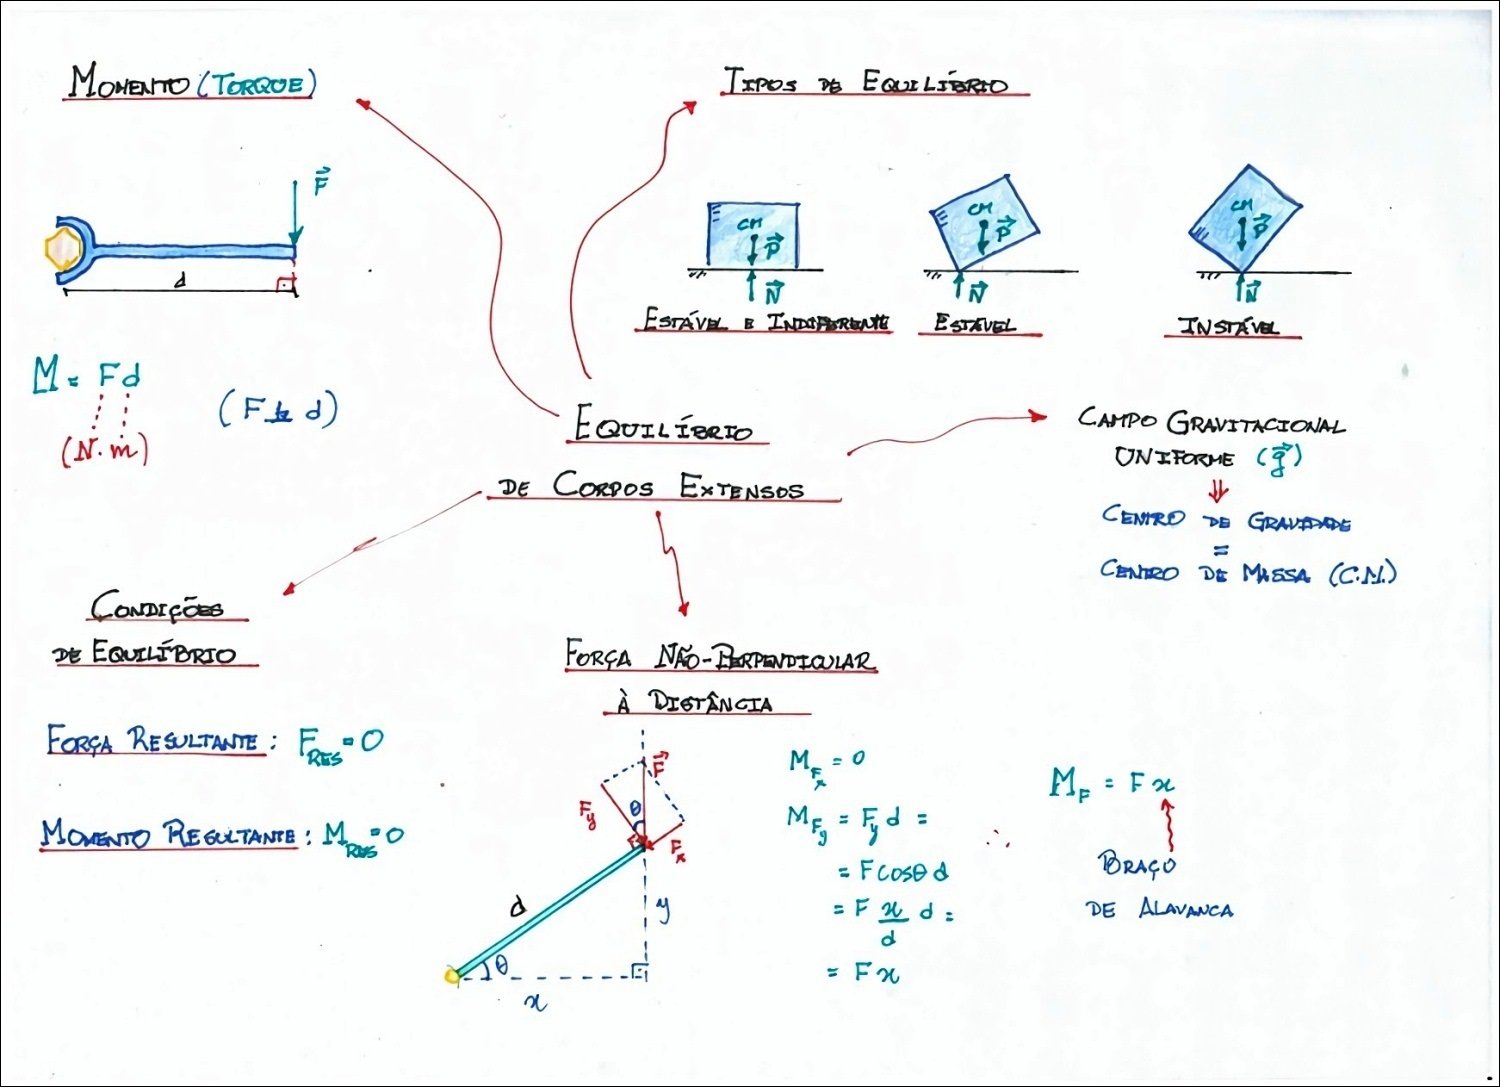 MOMENTO (TORQUE)
F
d
M = Fd
(N.m)
(F ⊥ d)
TIPOS DE EQUILÍBRIO
CM
P
N
ESTÁVEL E INDIFERENTE
CM
P
N
ESTÁVEL
CM
P
N
INSTÁVEL
EQUILÍBRIO
DE CORPOS EXTENSOS
CAMPO GRAVITACIONAL
UNIFORME (g)
⇓
CENTRO DE GRAVIDADE
=
CENTRO DE MASSA (C.M.)
CONDIÇÕES
DE EQUILÍBRIO
FORÇA RESULTANTE: F_RES = 0
MOMENTO RESULTANTE: M_RES = 0
FORÇA NÃO-PERPENDICULAR
À DISTÂNCIA
F
Fy
θ
Fx
d
y
θ
x
M_Fx = 0
M_Fy = Fy d =
= F cosθ d
= F x/d d =
= F x
∴
M_F = F x
BRAÇO
DE ALAVANCA